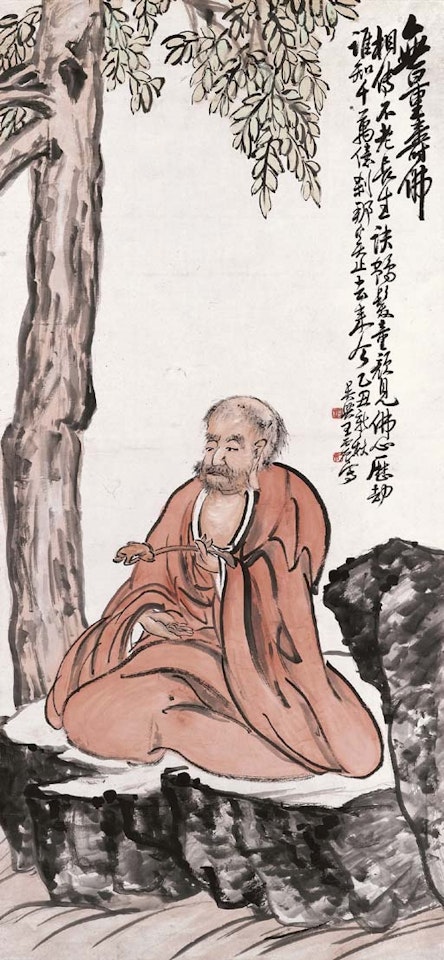 無量壽佛
相傳不老長生訣鶴髮童顏見佛心歷劫
誰知千萬億剎那奚止去來今乙丑新秋
吳興王震寫